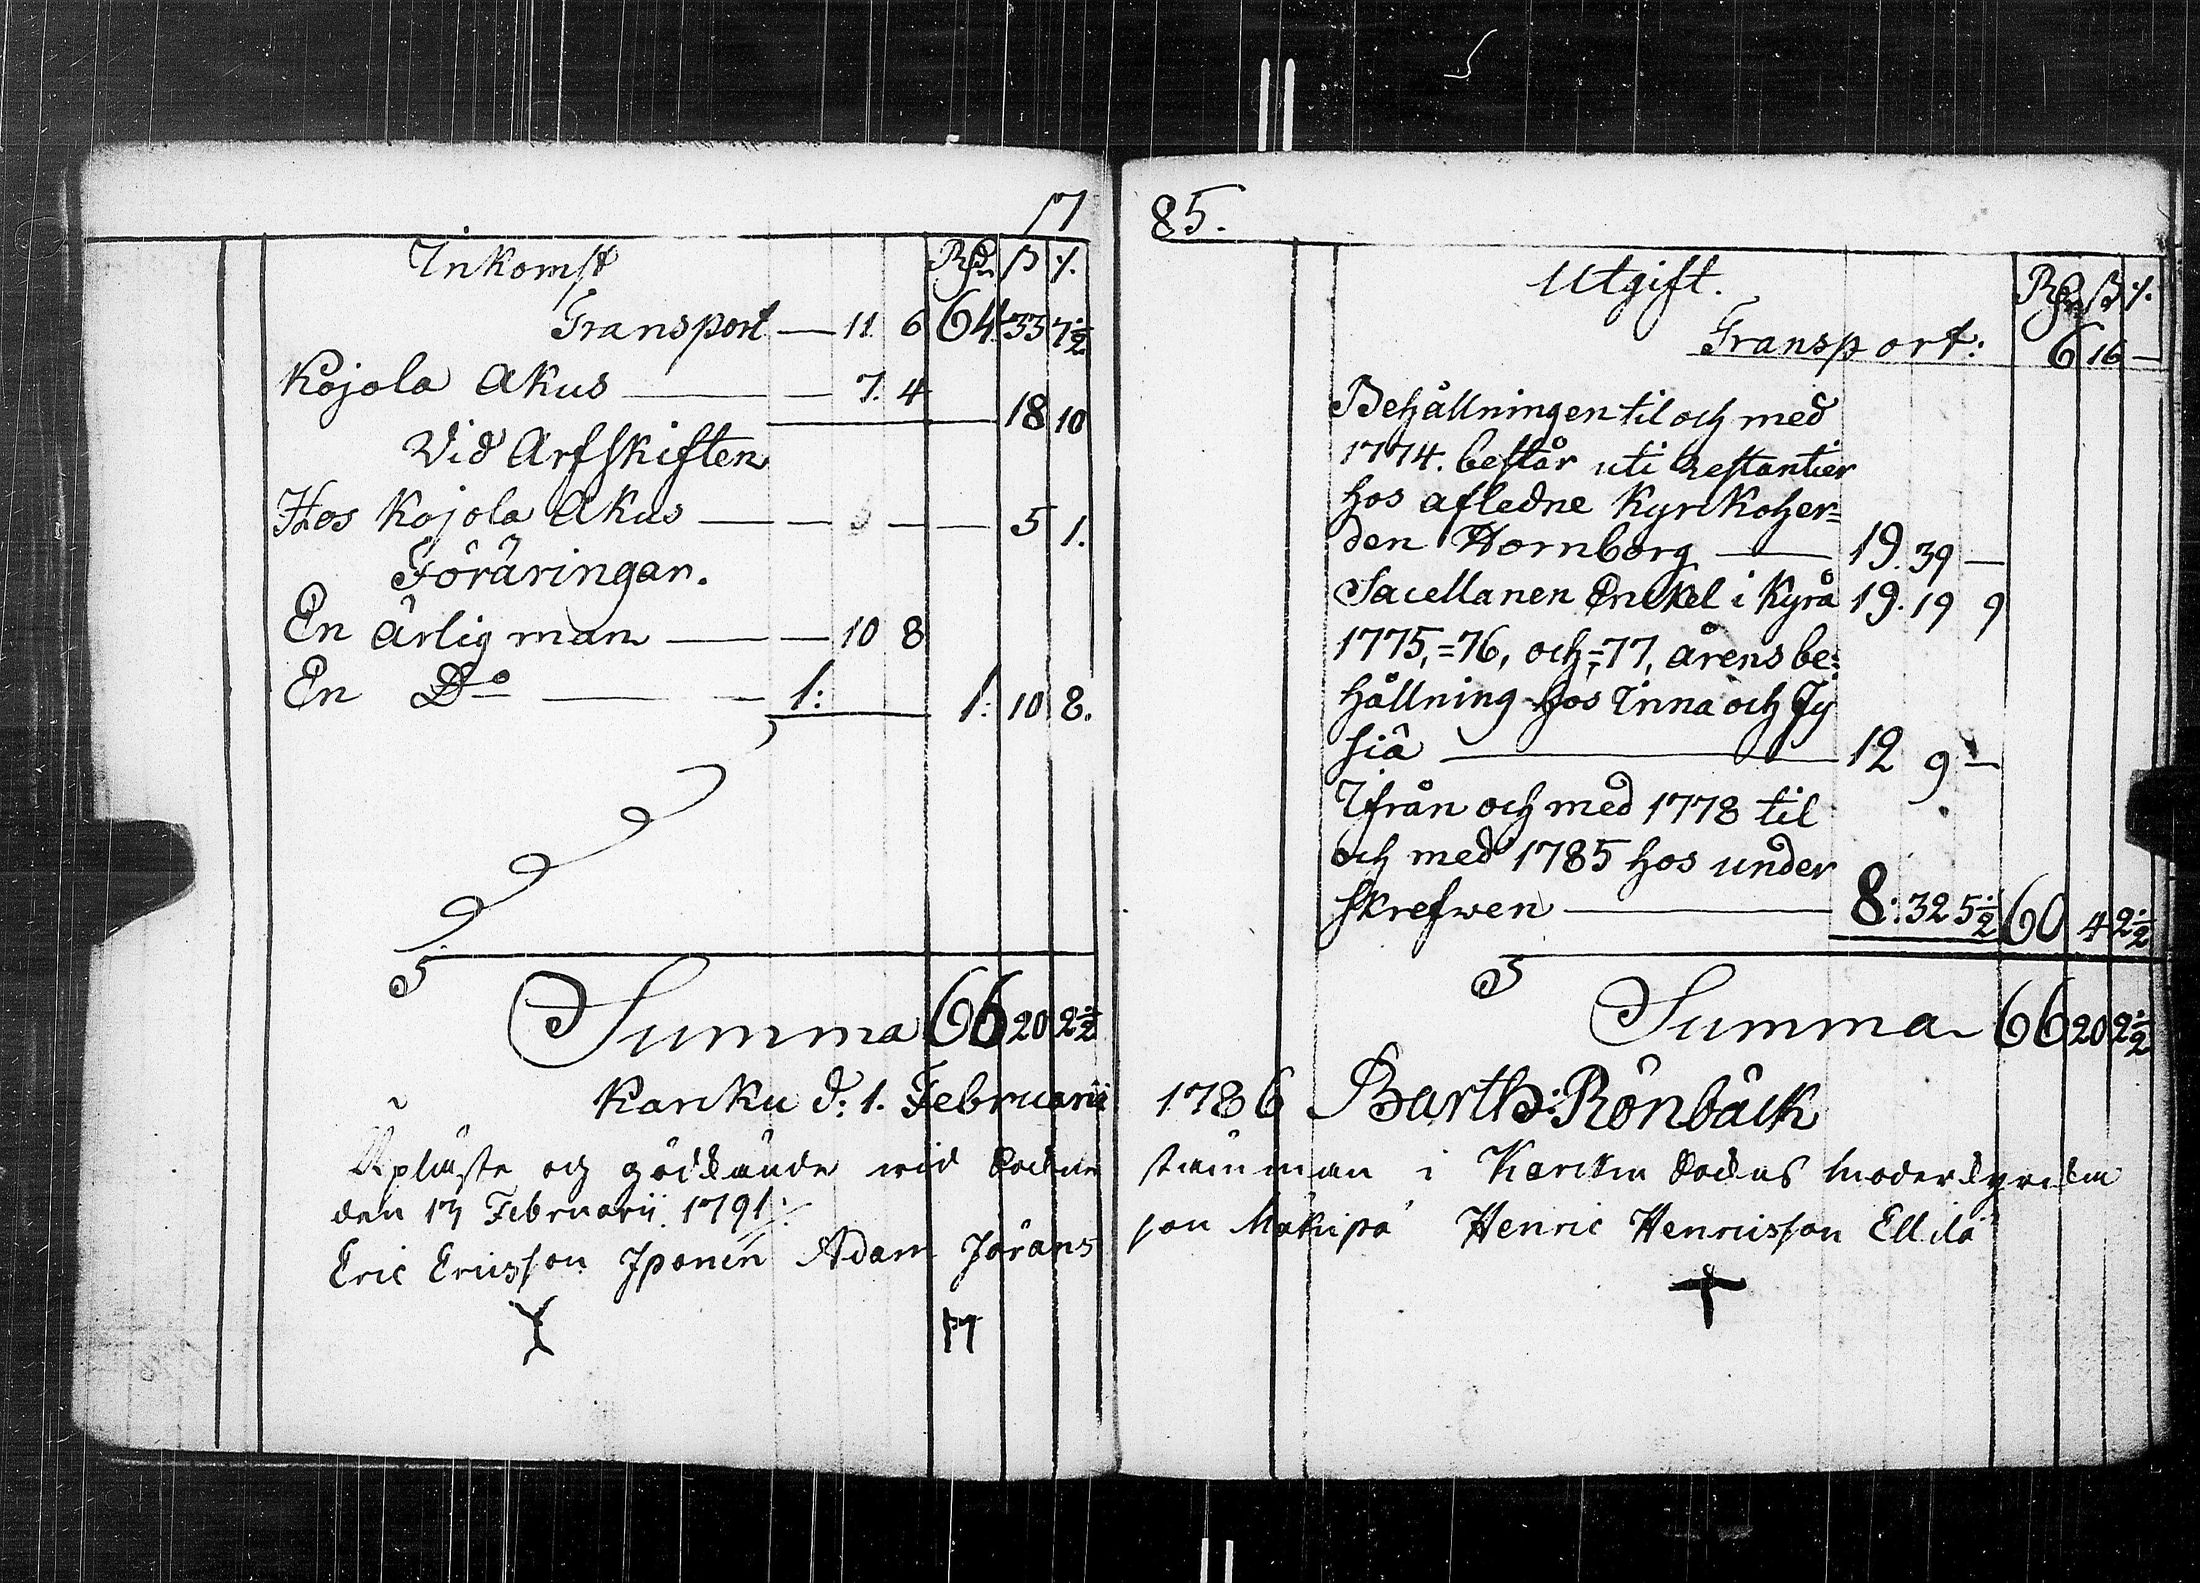 17
Inkomst Rdr ß ₰.
Transport — 11. 6 64. 33 7 1/2
Kojola Akus — 7. 4 18 10
Vid Arfskiften
Hos Kojola Akus — 5 1.
Föräringar.
En ärlig man — 10 8
En Do — 1: 1: 10 8.
Summa 66 20 2 1/2
Karku d: 1. Februarii
Upläste och godkände wid Sockne
den 17 Februarii 1791
Eric Ericsson Iponen Adam Jörans
85.
Utgift. Rdr ß ₰.
Transport: 6 16 —
Behållningen til och med
1774. består uti Restantier
hos afledne Kyrkoher=
den Hornborg — 19. 39 —
Sacellanen Enckel i Kyrå 19. 19 9
1775, =76, och =77, årens be=
hållning hos Inna och Jy
siä — 12 9 —
Ifrån och med 1778 til
och med 1785 hos under
skrefwen — 8: 32 5 1/2 60 4 2 1/2
Summa 66 20 2 1/2
1786 Barth: Rönbäck
stämman i Karcku Sockns moderkyrcka
son Mákipä Henric Henricsson Ellilä